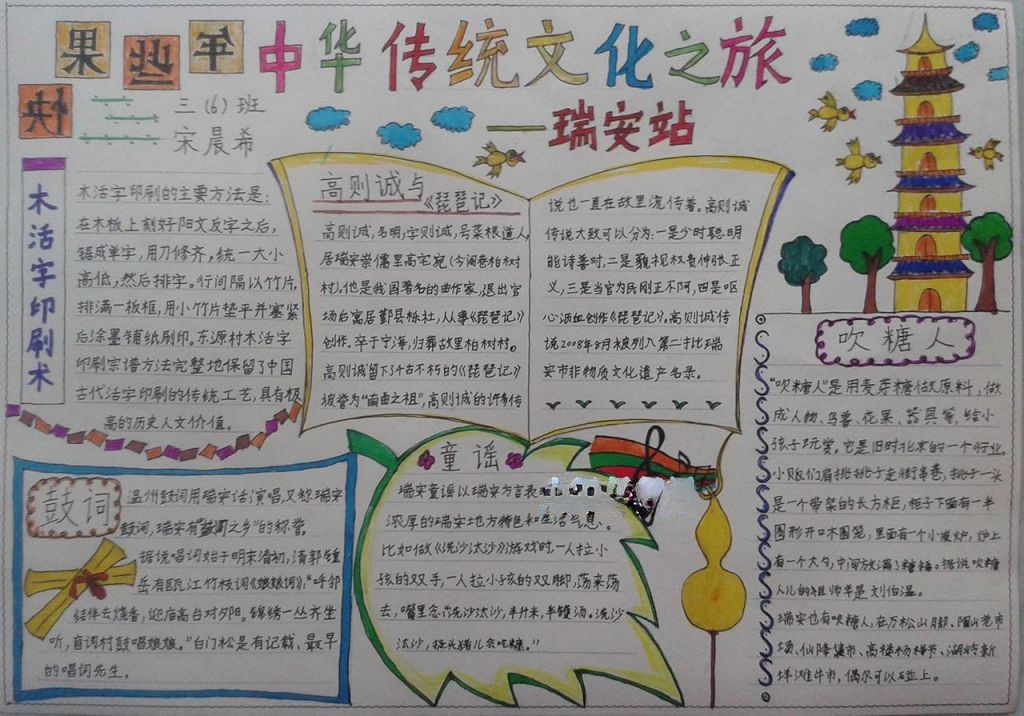 中华传统文化之旅
——瑞安站
三(6)班
宋晨希
木活字印刷术
木活字印刷的主要方法是:
在木板上刻好阳文反字之后,
锯成单字,用刀修齐,统一大小
高低,然后排字。行间隔以竹片,
排满一板框,用小竹片垫平并塞紧
后涂墨铺纸刷印。东源村木活字
印刷宗谱方法完整地保留了中国
古代活字印刷的传统工艺,具有极
高的历史人文价值。
高则诚与
《琵琶记》
高则诚,名明,字则诚,号菜根道人,
居瑞安崇儒里高宅宛(今阁巷柏树
村)。他是我国著名的曲作家,退出官
场后寓居鄞县栎社,从事《琵琶记》
创作。卒于宁海,归葬故里柏树村。
高则诚留下千古不朽的《琵琶记》
被誉为“南曲之祖”,高则诚的许多传
说也一直在故里流传着。高则诚
传说大致可以分为:一是少时聪明
能诗善对,二是藐视权贵伸张正
义,三是当官为民刚正不阿,四是呕
心沥血创作《琵琶记》。高则诚传
说2008年8月被列入第二批瑞
安市非物质文化遗产名录。
鼓词
温州鼓词用瑞安话演唱,又称瑞安
鼓词,瑞安有“鼓词之乡”的称誉。
据说唱词始于明末清初,清郭钟
岳有瓯江竹枝词《娘娘词》:“呼邻
结伴去烧香,迎庙高台对夕阳。锦绣一丛齐坐
听,盲词村鼓唱娘娘。”白门松是有记载、最早
的唱词先生。
童谣
瑞安童谣以瑞安方言表
浓厚的瑞安地方特色和生活气息。
比如做《洗沙汰沙》游戏时,一人拉小
孩的双手,一人拉小孩的双脚,荡来荡
去,嘴里念“洗沙汰沙,半升米,半镬汤。洗沙
汰沙,
吹糖人
“吹糖人”是用麦芽糖做原料,做
成人物、鸟兽、花果、器具等,给小
孩子玩赏。它是旧时北京的一个行业。
小贩们肩挑挑子走街串巷,挑子一头
是一个带架的长方柜,柜子下面有一半
圆形开口木圆笼,里面有一个小炭炉,炉上
有一个大勺,中间放满了糖稀。据说吹糖
人儿的祖师爷是刘伯温。
瑞安也有吹糖人,在万松山月脚、隆山老市
场、仙降集市、高楼杨梅节、湖岭新
洋滩牛市,偶尔可以碰上。